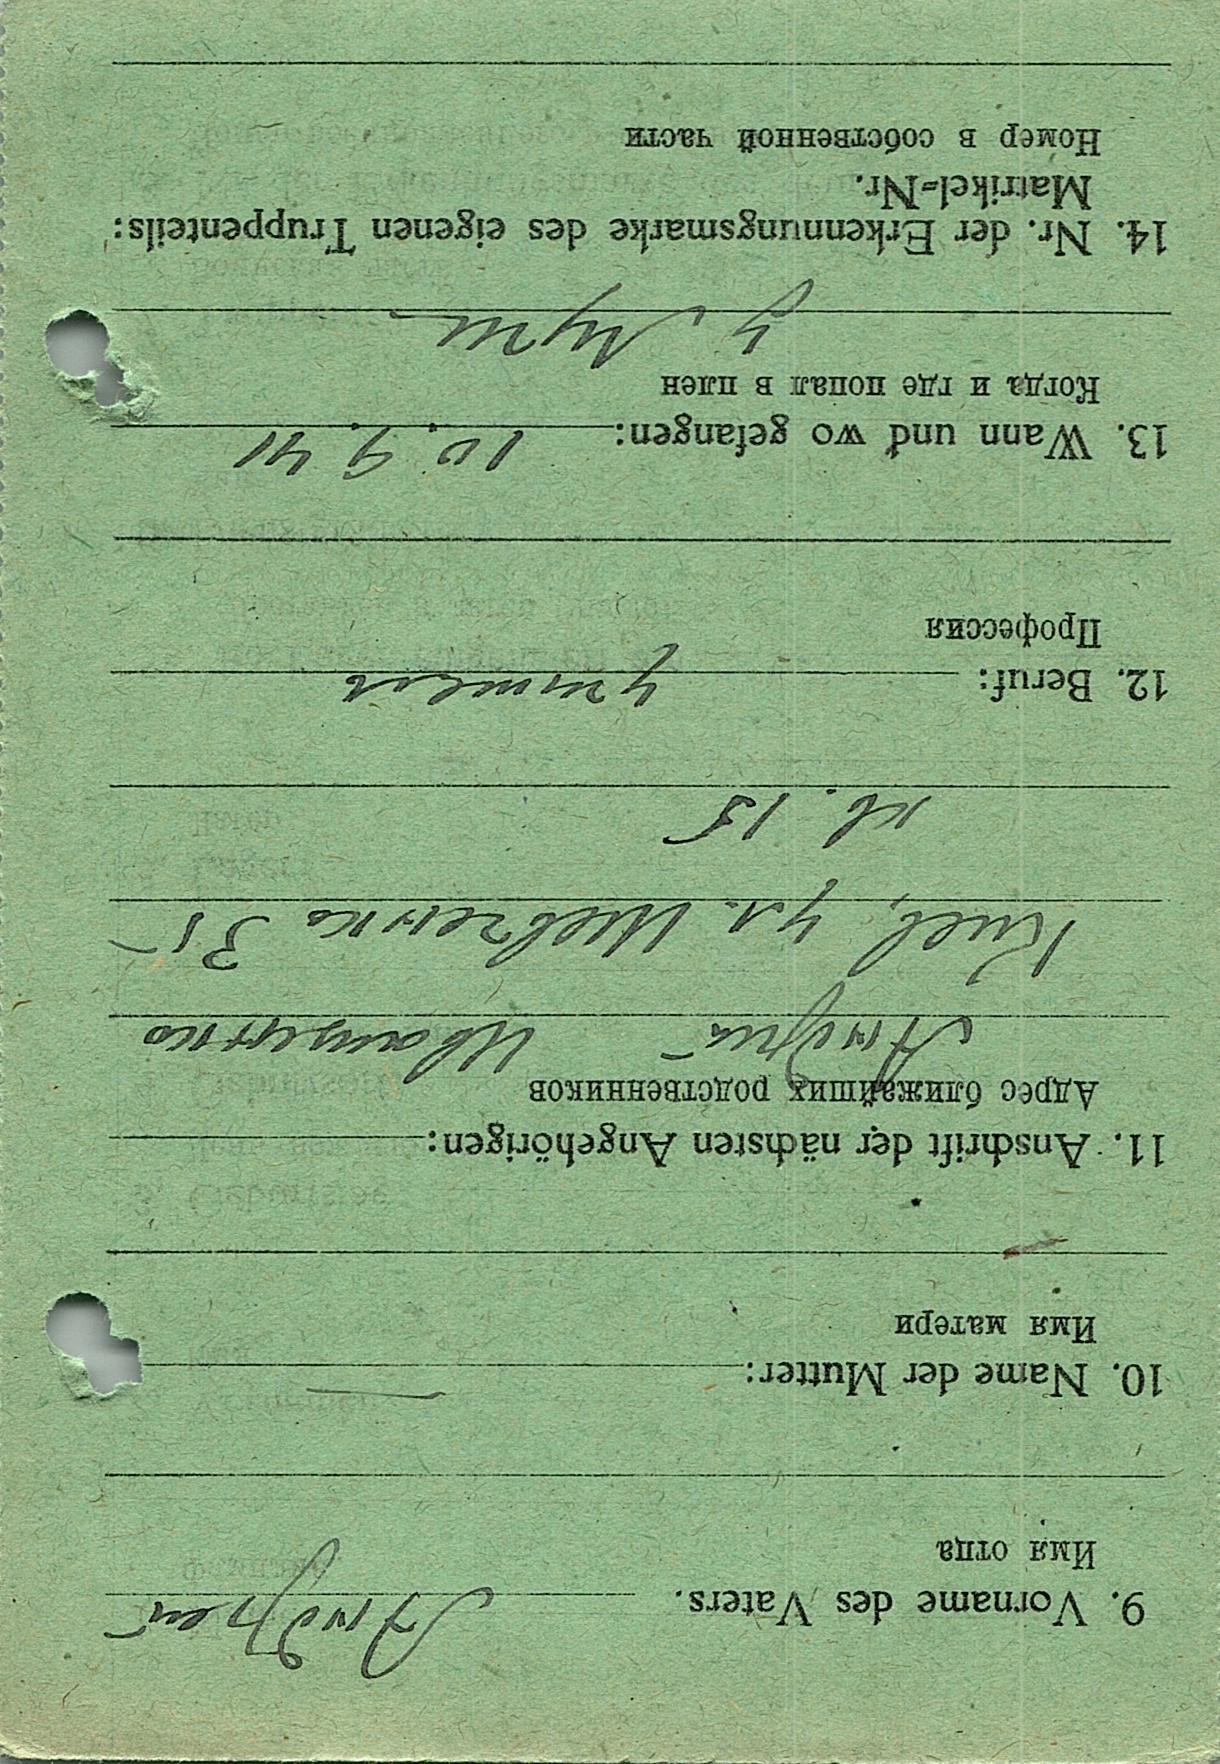 9. Vorname des Vaters. Андрей
Имя отца
10. Name der Mutter: —
Имя матери
11. Anschrift der nächsten Angehörigen:
Адрес ближайших родственников
Андрей Иващенко
Киев, ул. Шевченко 35
кв. 15
12. Beruf: учитель
Профессия
13. Wann und wo gefangen: 10.9.41
Когда и где попал в плен
14. Nr. der Erkennungsmarke des eigenen Truppenteils:
Matrikel=Nr.
Номер в собственной части